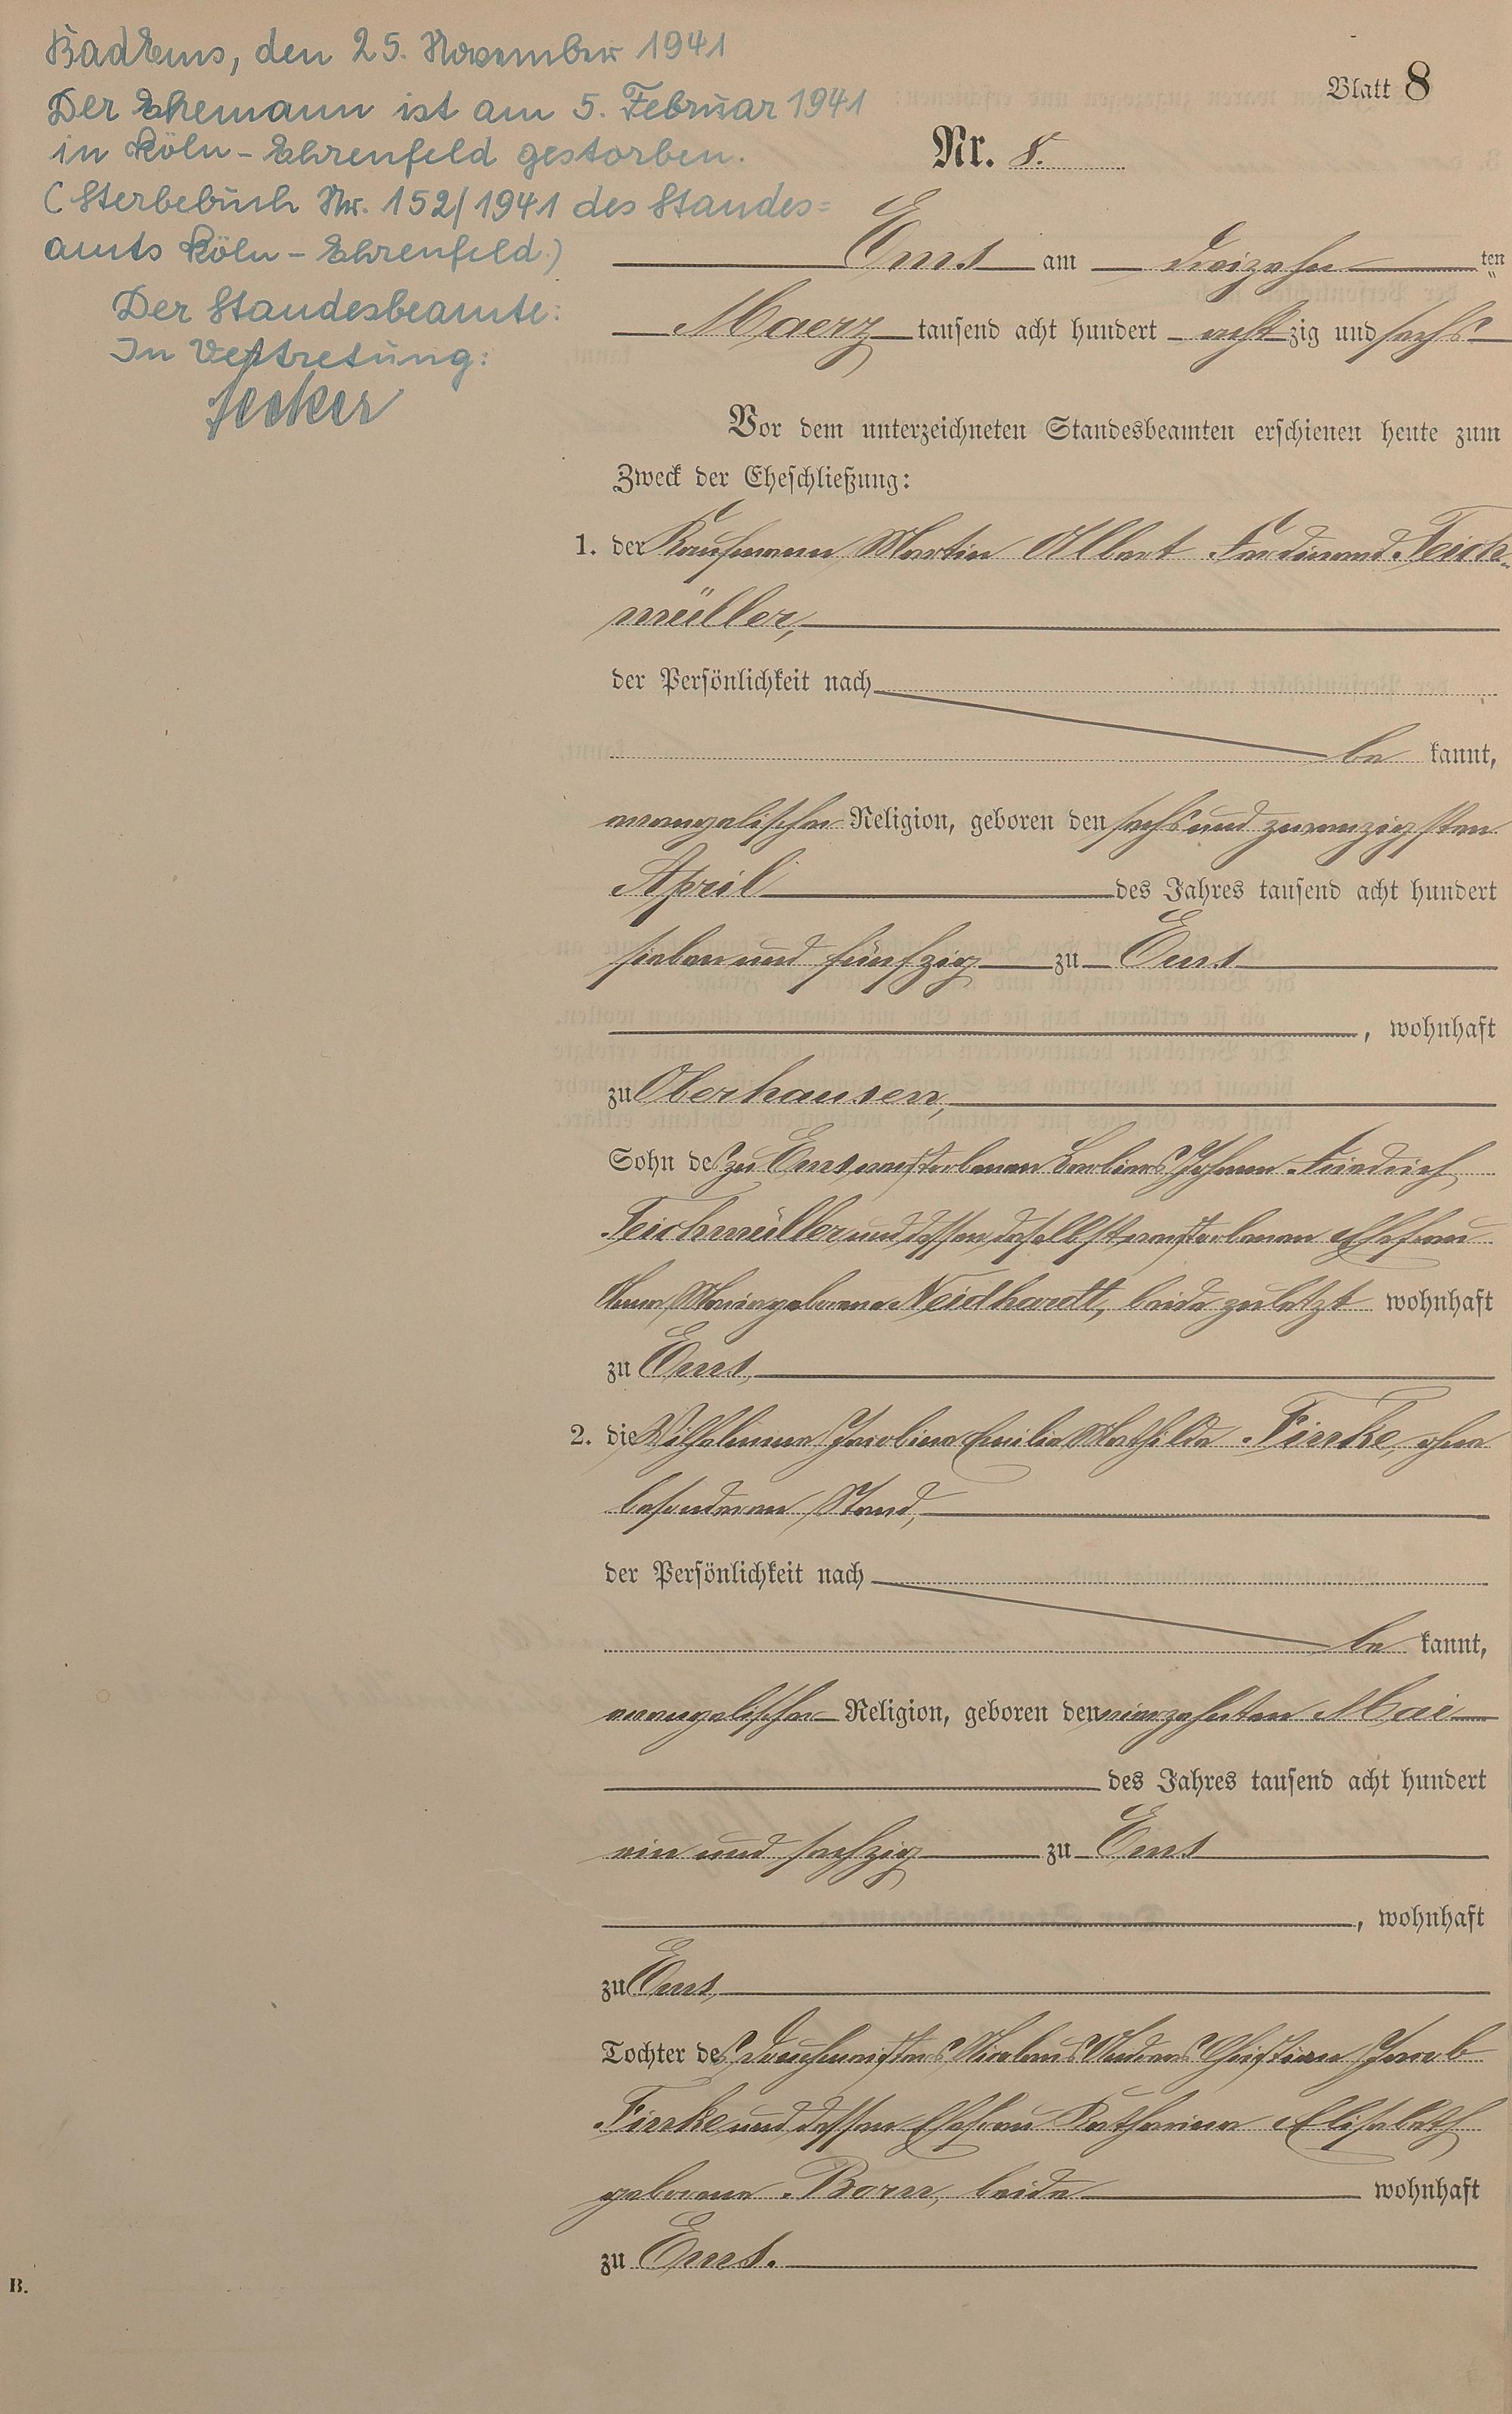 Bad Ems, den 25. November 1941
Der Ehemann ist am 5. Februar 1941
in Köln-Ehrenfeld gestorben.
(Sterbebuch Nr. 152/1941 des Standes=
amts Köln-Ehrenfeld.)
Der Standesbeamte:
In Vertretung:
Blatt 8
Nr. 8.
Ems am dreizehn ten
Maerz tausend acht hundert achtzig und sechs
Vor dem unterzeichneten Standesbeamten erschienen heute zum
Zweck der Eheschließung:
1. der Kaufmann Martin Albert Ferdinand Teich-
müller,
der Persönlichkeit nach
be kannt,
evangelischer Religion, geboren den sechs und zwanzigsten
April des Jahres tausend acht hundert
sieben und fünfzig zu Ems
, wohnhaft
zu Oberhausen,
Sohn des zu Ems verstorbenen Johann Friedrich
Teichmüller und dessen daselbst verstorbenen Ehefrau
Anna Maria geborene Neidhardt, beide zuletzt wohnhaft
zu Ems,
2. die Wilhelmine Jacobine Emilie Mathilde Finke, ohne
besonderen Stand,
der Persönlichkeit nach
be kannt,
evangelischer Religion, geboren den vierzehnten Mai
des Jahres tausend acht hundert
ein und sechzig zu Ems
, wohnhaft
zu Ems,
Tochter des Nicolaus Andreas Christian Jacob
Finke und dessen Ehefrau Katharina Elisabeth
geborene Born, beide wohnhaft
zu Ems.
B.